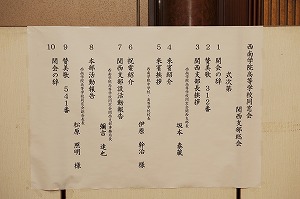 西南学院高等学校同窓会
関西支部総会
式次第
1 開会の辞
2 賛美歌 312番
3 関西支部長挨拶
坂本 泰敏
4 来賓紹介
5 来賓挨拶
伊原 幹治 様
6 祝電紹介
7 関西支部設活動報告
8 本部活動報告
達也
9 賛美歌 541番
松原 照明 様
10 閉会の辞